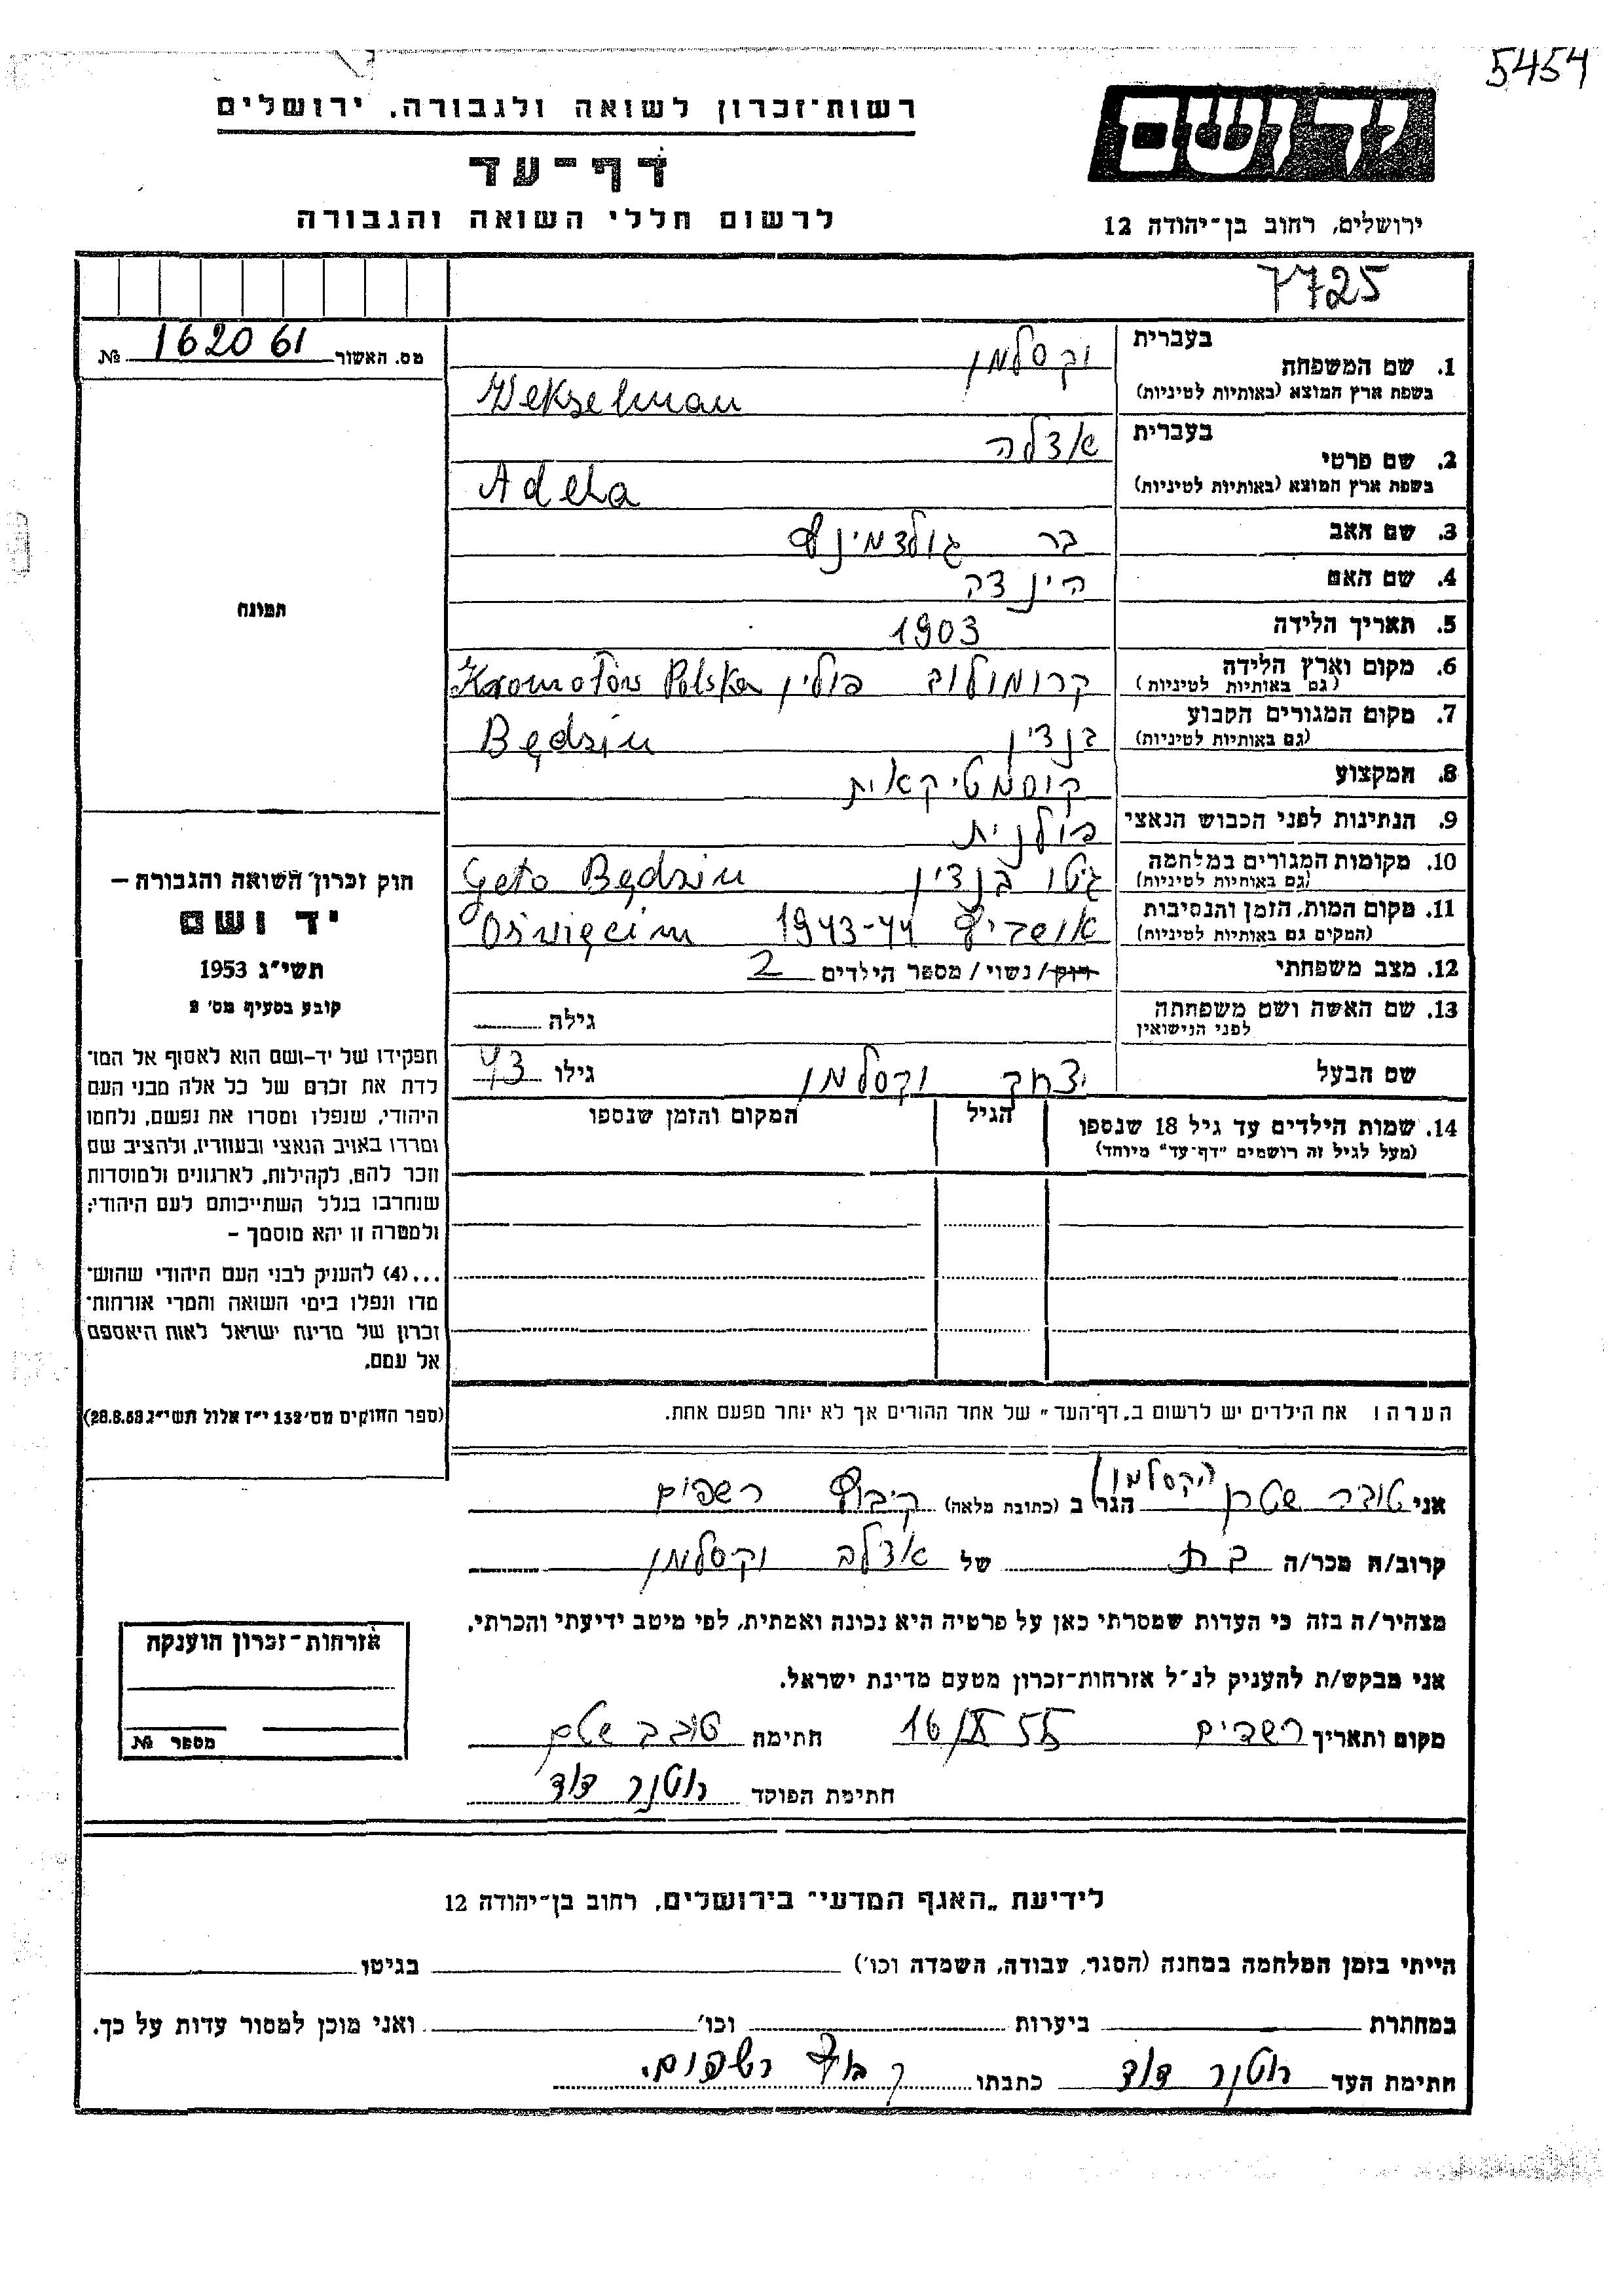 5454
רשות־זכרון לשואה ולגבורה, ירושלים
ידושם
דף־עד
לרשום חללי השואה והגבורה
ירושלים, רחוב בן־יהודה 12
7725
מס. האשור 162061 №
1. שם המשפחה בעברית וקסלמן
בשפת ארץ המוצא (באותיות לטיניות) Wekselman
2. שם פרטי בעברית אדלה
בשפת ארץ המוצא (באותיות לטיניות) Adela
3. שם האב בר
4. שם האם הינדה
תמונה
5. תאריך הלידה 1903
6. מקום וארץ הלידה (גם באותיות לטיניות) קרומולוב פולין Kromołów Polska
7. מקום המגורים הקבוע (גם באותיות לטיניות) בנדין Będzin
8. המקצוע קוסמטיקאית
9. הנתינות לפני הכבוש הנאצי פולנית
10. מקומות המגורים במלחמה (גם באותיות לטיניות) גיטו בנדין Geto Będzin
11. מקום המות, הזמן והנסיבות (המקום גם באותיות לטיניות) אושביץ 1943-44 Oświęcim
12. מצב משפחתי רוק/ נשוי / מספר הילדים 2
13. שם האשה ושם משפחתה לפני הנישואין גילה
שם הבעל יצחק וקסלמן גילו 43
14. שמות הילדים עד גיל 18 שנספו הגיל המקום והזמן שנספו
(מעל לגיל זה רושמים "דף־עד" מיוחד)
חוק זכרון השואה והגבורה –
יד ושם
תשי"ג 1953
קובע בסעיף מס' 2
תפקידו של יד–ושם הוא לאסוף אל המו־
לדת את זכרם של כל אלה מבני העם
היהודי, שנפלו ומסרו את נפשם, נלחמו
ומרדו באויב הנאצי ובעוזריו, ולהציב שם
וזכר להם, לקהילות, לארגונים ולמוסדות
שנחרבו בגלל השתייכותם לעם היהודי;
ולמטרה זו יהא מוסמך –
...(4) להעניק לבני העם היהודי שהוש־
מדו ונפלו בימי השואה והמרי אזרחות־
זכרון של מדינת ישראל לאות היאספם
אל עמם.
(ספר החוקים מס' 132 י"ז אלול תשי"ג 28.8.53)
הערה: את הילדים יש לרשום ב„דף־העד" של אחד ההורים אך לא יותר מפעם אחת.
אני טובה שטרן (וקסלמן) הגר ב (כתובת מלאה) קיבוץ רשפים
קרוב/ה מכר/ה בת של אדלה וקסלמן
מצהיר/ה בזה כי העדות שמסרתי כאן על פרטיה היא נכונה ואמתית, לפי מיטב ידיעתי והכרתי.
אני מבקש/ת להעניק לנ"ל אזרחות־זכרון מטעם מדינת ישראל.
מקום ותאריך רשפים 16/IX 55 חתימה טובה שטרן
חתימת הפוקד רוטנר דוד
אזרחות־זכרון הוענקה
מספר №
לידיעת „האגף המדעי" בירושלים, רחוב בן־יהודה 12
הייתי בזמן המלחמה במחנה (הסגר, עבודה, השמדה וכו') בגיטו
במחתרת ביערות וכו' ואני מוכן למסור עדות על כך.
חתימת העד רוטנר דוד כתבתו קבוץ רשפים.